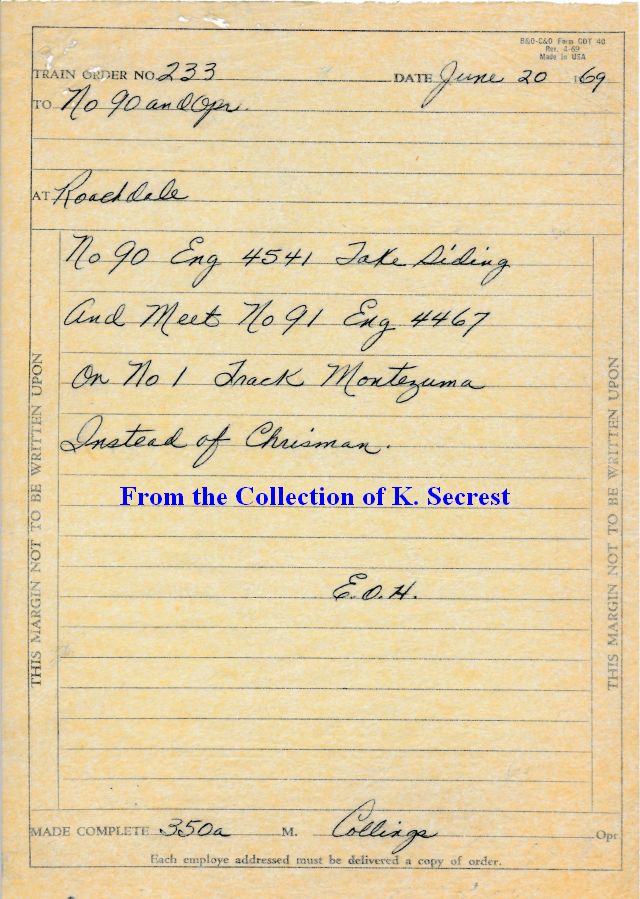 B&O-C&O Form GDT 40
Rev. 4-69
Made in USA
TRAIN ORDER NO. 233 DATE June 20 1969
TO No 90 and Opr.
AT Roachdale
No 90 Eng 4541 Take Siding
And Meet No 91 Eng 4467
On No 1 Track Montezuma
Instead of Chrisman.
From the Collection of K. Secrest
E.O.H.
THIS MARGIN NOT TO BE WRITTEN UPON
THIS MARGIN NOT TO BE WRITTEN UPON
MADE COMPLETE 350a M. Collings Opr.
Each employe addressed must be delivered a copy of order.